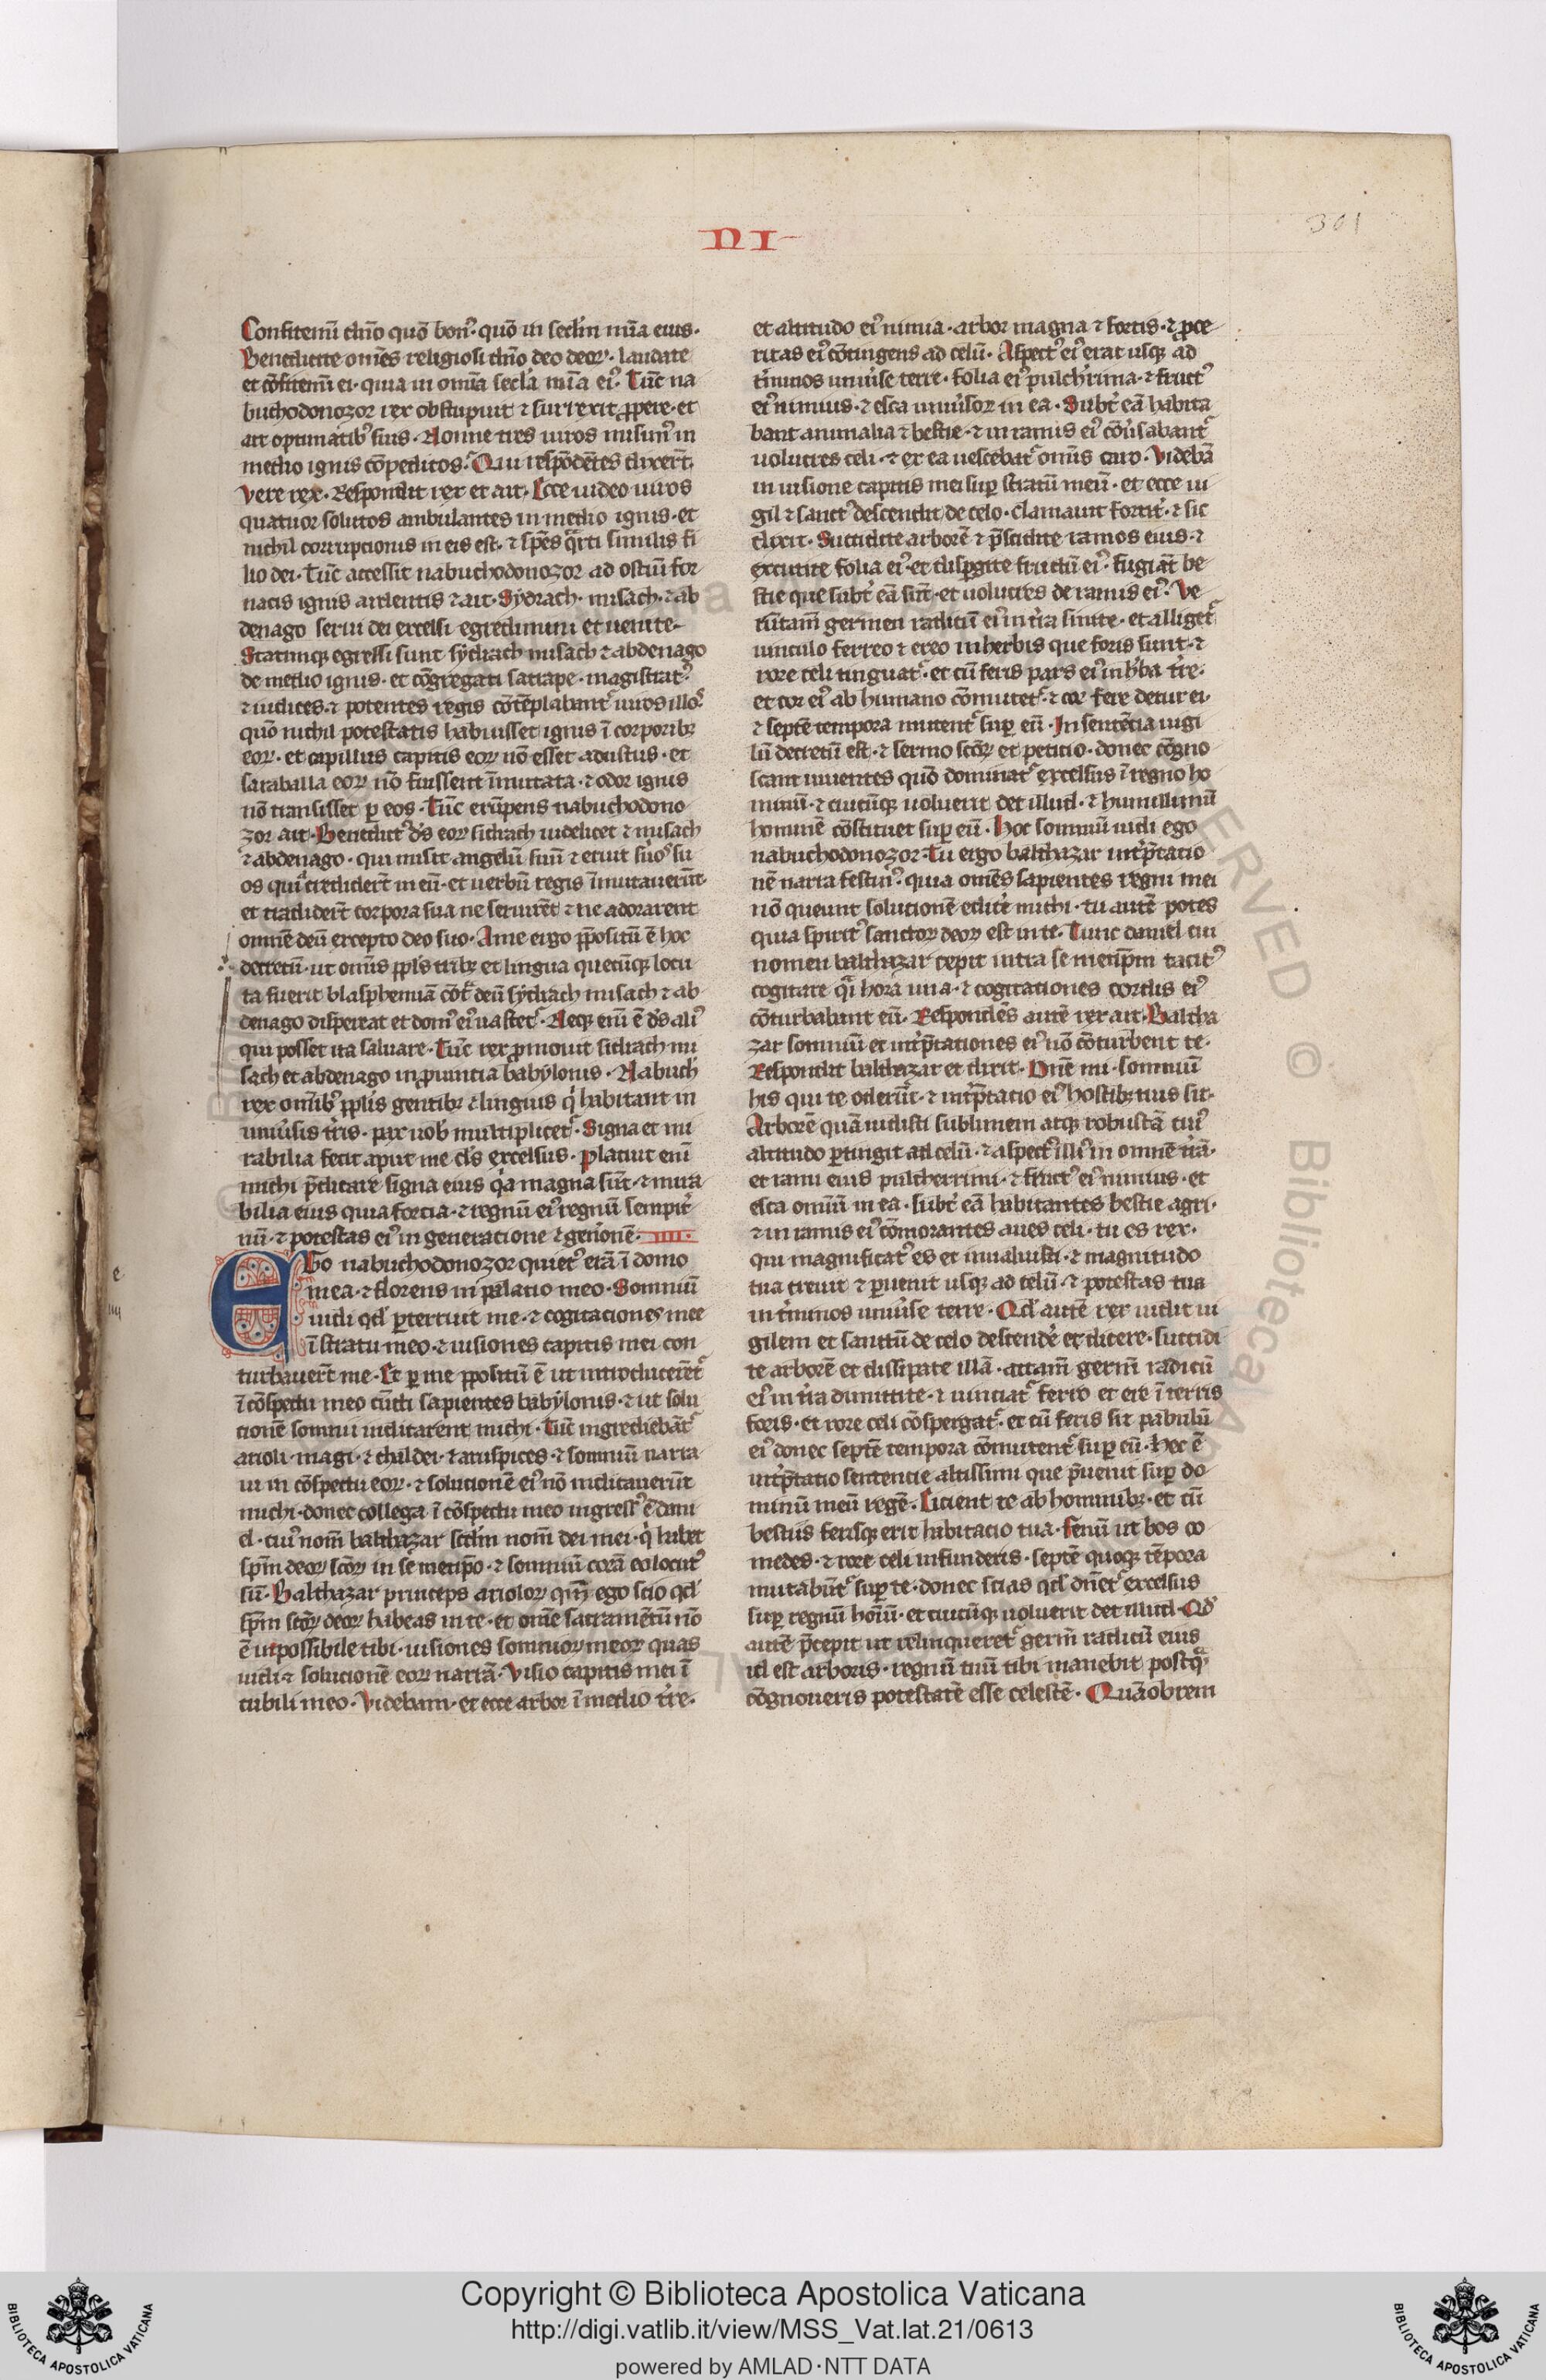 NI
301
Confitem̅i dn̅o quo̅ bon᷒· quo̅ in secl̅m mi̅a eius·
Benedicite om̅es religiosi dn̅o deo deoꝝ· laudate
et co̅fitem̅i ei· quia in om̅ia secl̅a mi̅a ei᷒· Tu̅c na
buchodonozor rex obstupuit ⁊ surrexit ꝓpere· et
ait optimatib᷒ suis· Nonne tres uiros misim᷒ in
medio ignis co̅peditos· Qui respo̅de̅tes dixer̅t·
Vere rex· Respondit rex et ait· Ecce uideo uiros
quatuor solutos ambulantes in medio ignis· et
nichil corruptionis in eis est· ⁊ spe̅s qᷓrti similis fi
lio dei· Tu̅c accessit nabuchodonozor ad ostiu̅ for
nacis ignis ardentis ⁊ ait· Sydrach· misach· ⁊ ab
denago serui dei excelsi egredimini et uenite·
Statimqꝫ egressi sunt sydrach misach ⁊ abdenago
de medio ignis· et co̅gregati satrape· magistrat᷒·
⁊ iudices· ⁊ potentes regis co̅te̅plabant᷑ uiros illos·
quo̅ nichil potestatis habuisset ignis i̅ corporibꝫ
eoꝝ· et capillus capitis eoꝝ no̅ esset adustus· et
saraballa eoꝝ no̅ fuissent i̅mutata· ⁊ odor ignis
no̅ transisset ꝑ eos· Tu̅c eru̅pens nabuchodono
zor ait· Benedict᷒ ds̅ eoꝝ sidrach uidelicet ⁊ misach
⁊ abdenago· qui misit angelu̅ suu̅ ⁊ eruit s̅uos su
os quiᷓ credider̅t in eu̅· et uerbu̅ regis i̅mutaueru̅t·
et tradider̅t corpora sua ne seruire̅t ⁊ ne adorarent
omne̅ deu̅ excepto deo suo· A me ergo ꝓpositu̅ e̅ hoc
decretu̅· ut om̅is ppl̅s tribꝫ et lingua quecu̅qꝫ locu
ta fuerit blasphemia̅ co̅tᷓ deu̅ sydrach misach ⁊ ab
denago dispereat et dom᷒ ei᷒ uastet᷑· Neqꝫ eni̅ e̅ ds̅ ali᷒
qui posset ita saluare· Tu̅c rex ꝓmouit sidrach mi
sach et abdenago in ꝓuincia babylonis· Nabuch̅
rex om̅ib᷒ ppl̅is gentibꝫ ⁊ linguis q̇ habitant in
uniu̅sis tr̅is· pax uob̅ multiplicet᷑· Signa et mi
rabilia fecit aput me ds̅ excelsus· Placuit eni̅
michi p̅dicare signa eius q̇a magna su̅t· ⁊ mira
bilia eius quia forcia· ⁊ regnu̅ ei᷒ regnu̅ sempit̅
nu̅· ⁊ potestas ei᷒ in generatione ⁊ gen̅ione̅· IIII·
EGo nabuchodonozor quiet᷒ era̅ i̅ domo
mea· ⁊ florens in palatio meo· Somniu̅
uidi qd̅ ꝑterruit me· ⁊ cogitaciones mee
i̅ stratu meo· ⁊ uisiones capitis mei con
turbauer̅t me· Et ꝑ me ꝓpositu̅ e̅ ut introducere̅t᷑
i̅ co̅spectu meo cu̅cti sapientes babylonis· ⁊ ut solu
cione̅ somnii indicarent michi· Tu̅c ingredieba̅t᷑
arioli· magi· ⁊ chaldei· ⁊ aruspices· ⁊ somniu̅ narra
ui in co̅spectu eoꝝ· ⁊ solucione̅ ei᷒ no̅ indicaueru̅t
michi· donec collega i̅ co̅spectu meo ingress᷒ e̅ dani
el· cui᷒ nom̅ balthazar scd̅m nom̅ dei mei· q̇ habet
spm̅ deoꝝ sco̅ꝝ in se̅ metipo̅· ⁊ somniu̅ cora̅ eo locut᷒
su̅· Balthazar princeps arioloꝝ qm̅ ego scio qd̅
spm̅ sco̅ꝝ deoꝝ habeas in te· et om̅e sacrame̅tu̅ no̅
e̅ inpossibile tibi· uisiones somnioꝝ meoꝝ quas
uidi ⁊ solucione̅ eoꝝ narra̅· Visio capitis mei i̅
cubili meo· Videbam· et ecce arbor i̅ medio tr̅e·
et altitudo ei᷒ nimia· arbor magna ⁊ fortis· ⁊ ꝓce
ritas ei᷒ co̅tingens ad celu̅· Aspect᷒ ei᷒ erat usqꝫ ad
t̅minos uniu̅se terre· folia ei᷒ pulch̅rima· ⁊ fruct᷒
ei᷒ nimius· ⁊ esca uniu̅soꝝ in ea· Subt̅ ea̅ habita
bant animalia ⁊ bestie· ⁊ in ramis ei᷒ co̅u̅sabant᷑
uolucres celi· ⁊ ex ea uescebat᷑ om̅is caro· Videba̅
in uisione capitis mei suꝑ stratu̅ meu̅· et ecce ui
gil ⁊ sanct᷒ descendit de celo· clamauit fortit̅· ⁊ sic
dixit· Succidite arbore̅ ⁊ p̅scidite ramos eius· ⁊
excutite folia ei᷒· et disꝑgite fructu̅ ei᷒· fugia̅t be
stie que subt̅ ea̅ su̅t· et uolucres de ramis ei᷒· Ve
ru̅tam̅ germen radicu̅ ei᷒ in tr̅a sinite· et alliget᷑
uinculo ferreo ⁊ ereo in herbis que foris sunt· ⁊
rore celi tinguat᷑· et cu̅ feris pars ei᷒ in h̅ba tr̅e·
et cor ei᷒ ab humano co̅mutet᷑· ⁊ cor fere detur ei·
⁊ septe̅ tempora mutent᷑ suꝑ eu̅· In sente̅cia uigi
lu̅ decretu̅ est· ⁊ sermo sco̅ꝝ et petitio· donec co̅gno
scant uiuentes quo̅ dominat᷑ excelsus i̅ regno ho
minu̅· ⁊ cuicu̅qꝫ uoluerit det illud· ⁊ humillimu̅
homine̅ co̅stituet suꝑ eu̅· Hoc somniu̅ uidi ego
nabuchodonozor· Tu ergo balthazar int̅p̅tatio
ne̅ narra festin᷒· quia om̅es sapientes regni mei
no̅ queunt solutione̅ edice̅ michi· tu aute̅ potes
quia spirit᷒ sanctoꝝ deoꝝ est in te· Tunc daniel cui
nomen balthazar cepit intra se metipm̅ tacit᷒
cogitare qᷓi hora una· ⁊ cogitationes cordis ei᷒
co̅turbabant eu̅· Responde̅s aute̅ rex ait· Baltha
zar somniu̅ et int̅p̅tationes ei᷒ no̅ co̅turbent te·
Respondit balthazar et dixit· Dn̅e mi· somniu̅
his qui te oderu̅t· ⁊ int̅p̅tatio ei᷒ hostibꝫ tuis sit·
Arbore̅ qua̅ uidisti sublimem atqꝫ robusta̅ cui᷒
altitudo ꝑtingit ad celu̅· ⁊ aspect᷒ illi᷒ in omne̅ tr̅a̅·
et rami eius pulcherrimi· ⁊ fruct᷒ ei᷒ nimius· et
esca omiu̅ in ea· subt̅ ea̅ habitantes bestie agri·
⁊ in ramis ei᷒ co̅morantes aues celi· tu es rex·
qui magnificat᷒ es et inualuisti· ⁊ magnitudo
tua creuit ⁊ ꝑuenit usqꝫ ad celu̅· ⁊ potestas tua
in t̅minos uniu̅se terre· Qd̅ aute̅ rex uidit ui
gilem et sanctu̅ de celo descende̅ et dicere· succidi
te arbore̅ et dissipate illa̅· attam̅ germ̅ radicu̅
ei᷒ in tr̅a dimittite· ⁊ uinciat᷑ ferro et ere i̅ terris
foris· et rore celi co̅spergat᷑· et cu̅ feris sit pabulu̅
ei᷒ donec septe̅ tempora co̅mutent᷑ suꝑ eu̅· Hec e̅
int̅p̅tatio sentencie altissimi que p̅uenit suꝑ do
minu̅ meu̅ rege̅· Eicient te ab hominibꝫ· et cu̅
bestiis ferisqꝫ erit habitacio tua· Fenu̅ ut bos co
medes· ⁊ rore celi infunderis· septe̅ quoqꝫ te̅pora
mutabu̅t᷑ suꝑ te· donec scias qd̅ dn̅et᷑ excelsus
suꝑ regnu̅ hoi̅u̅· et cuicu̅qꝫ uoluerit det illud· Qd̅
aute̅ p̅cepit ut relinqueret᷑ germ̅ radicu̅ eius
id est arboris· regnu̅ tuu̅ tibi manebit postqᷓ
co̅gnoueris potestate̅ esse celeste̅· Qua̅obrem
e
iiij
Copyright © Biblioteca Apostolica Vaticana
http://digi.vatlib.it/view/MSS_Vat.lat.21/0613
powered by AMLAD·NTT DATA
BIBLIOTECA APOSTOLICA VATICANA
BIBLIOTECA APOSTOLICA VATICANA